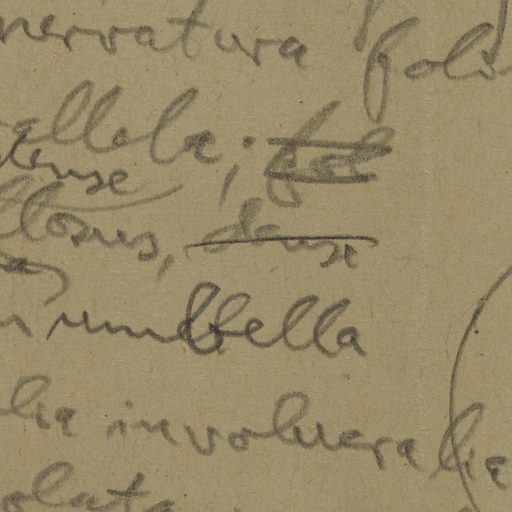 nervatura foli
allela; fol
dense
llosus, dense
umbella
lia involucra lia
olata